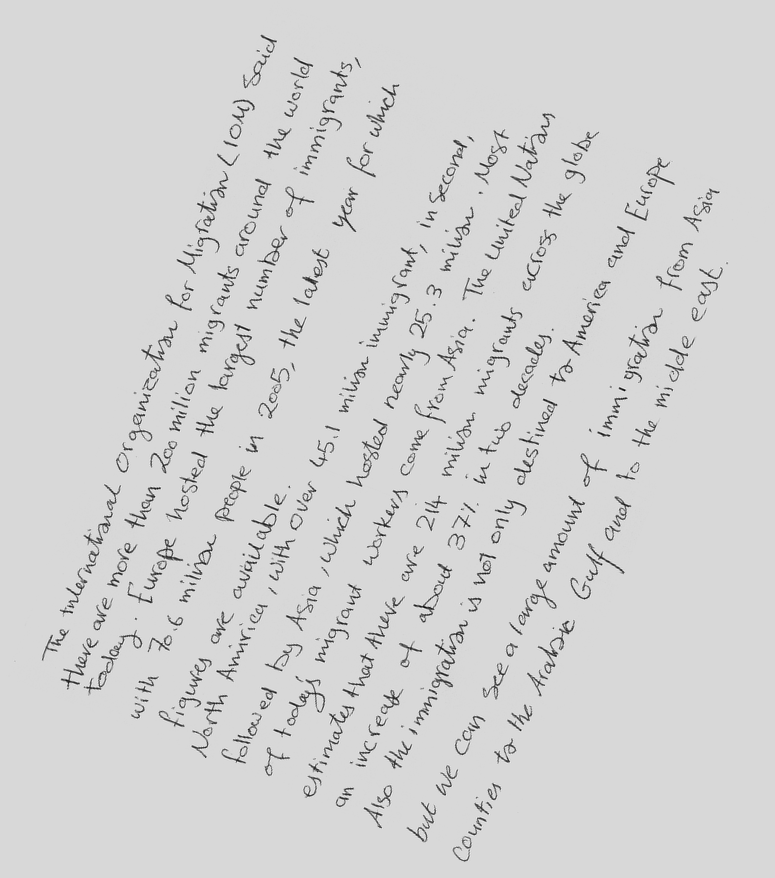 The International Organization for Migration (IOM) said
there are more than 200 million migrants around the world
today. Europe hosted the largest number of immigrants,
with 70.6 milion people in 2005, the latest year for which
figures are available.
North Amirica, with over 45.1 milion immigrant, in second,
followed by Asia, which hosted nearly 25.3 milion. Most
of today's migrant workers come from Asia. The United Nations
estimates that there are 214 milion migrants across the globe
an increase of about 37% in two decades.
Also the immigration is not only destined to America and Europe
but we can see a large amount of immigration from Asia
Counties to the Arabic Gulf and to the middle east.